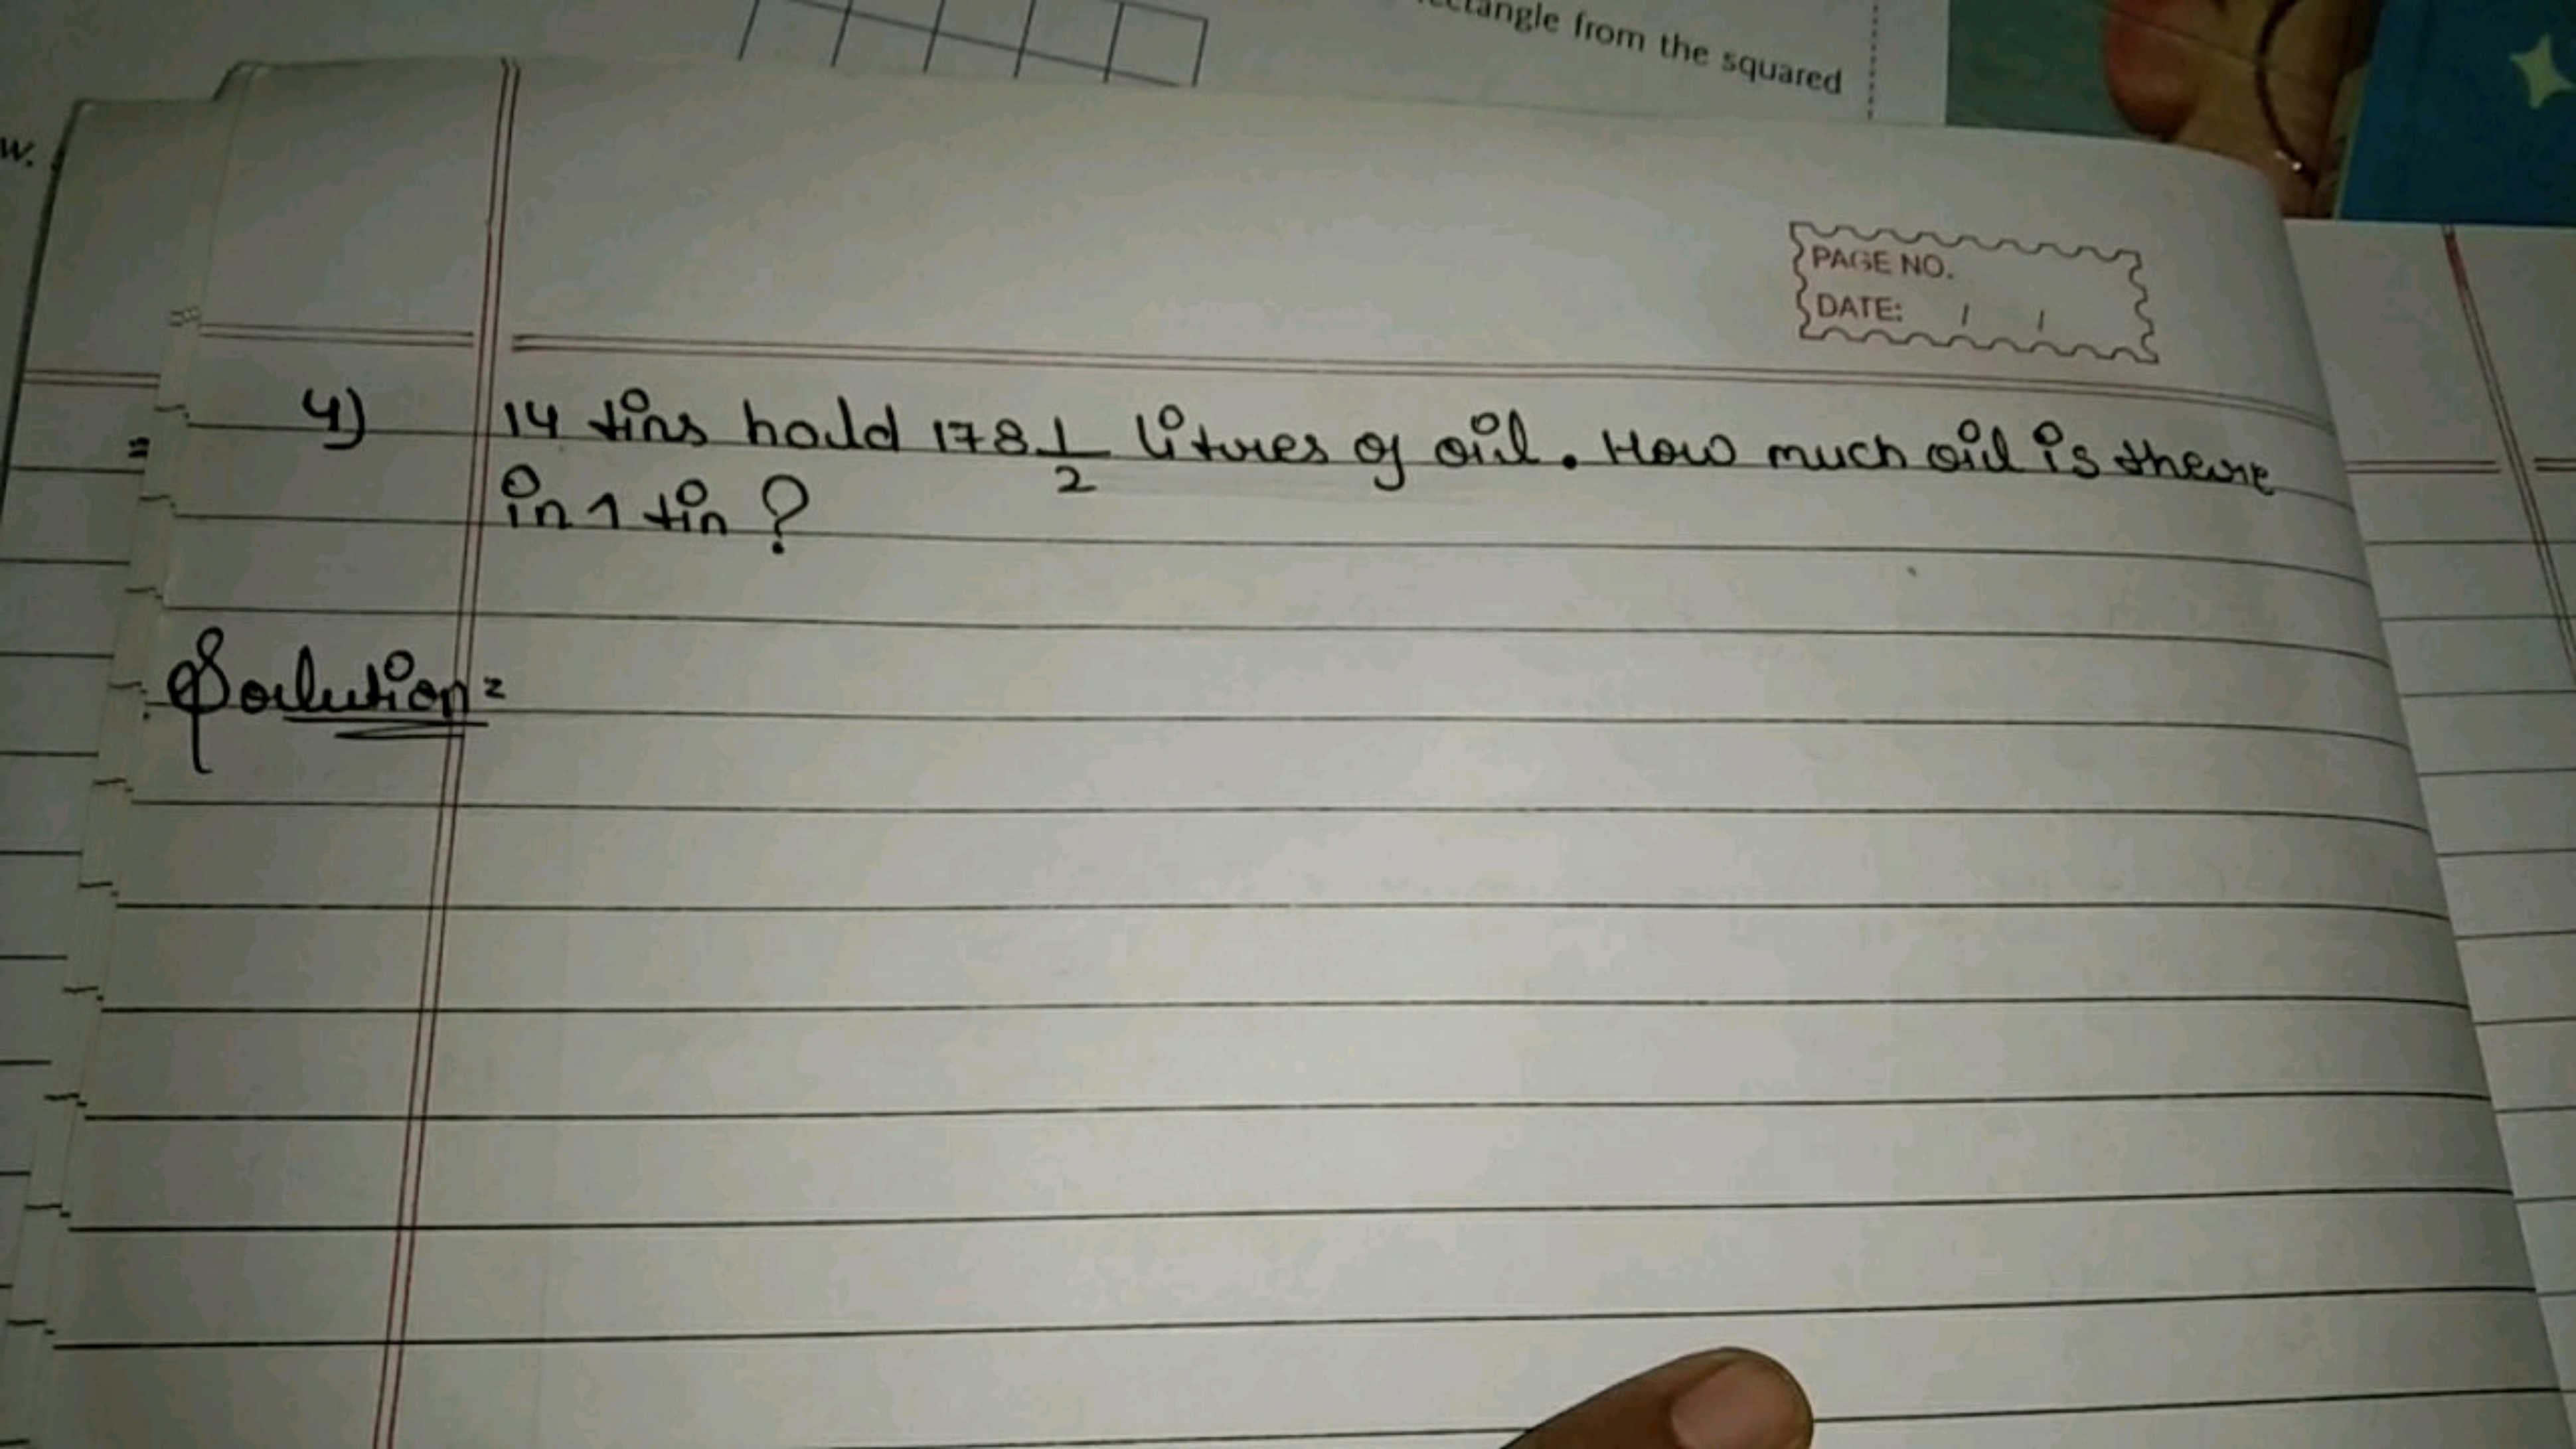 ectangle from the squared
w.
PAGE NO.
DATE: / /
=
4) 14 tins hold 178 1/2 litres of oil. How much oil is there
in 1 tin ?
Solution =